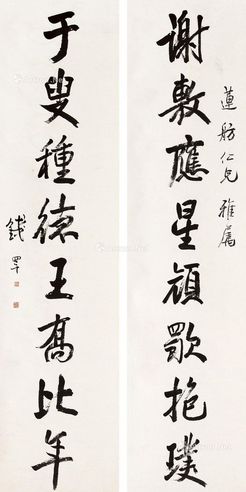 謝敷應星顏歜抱璞
蓮舫仁兄雅屬
于叟種德王喬比年
錢罕